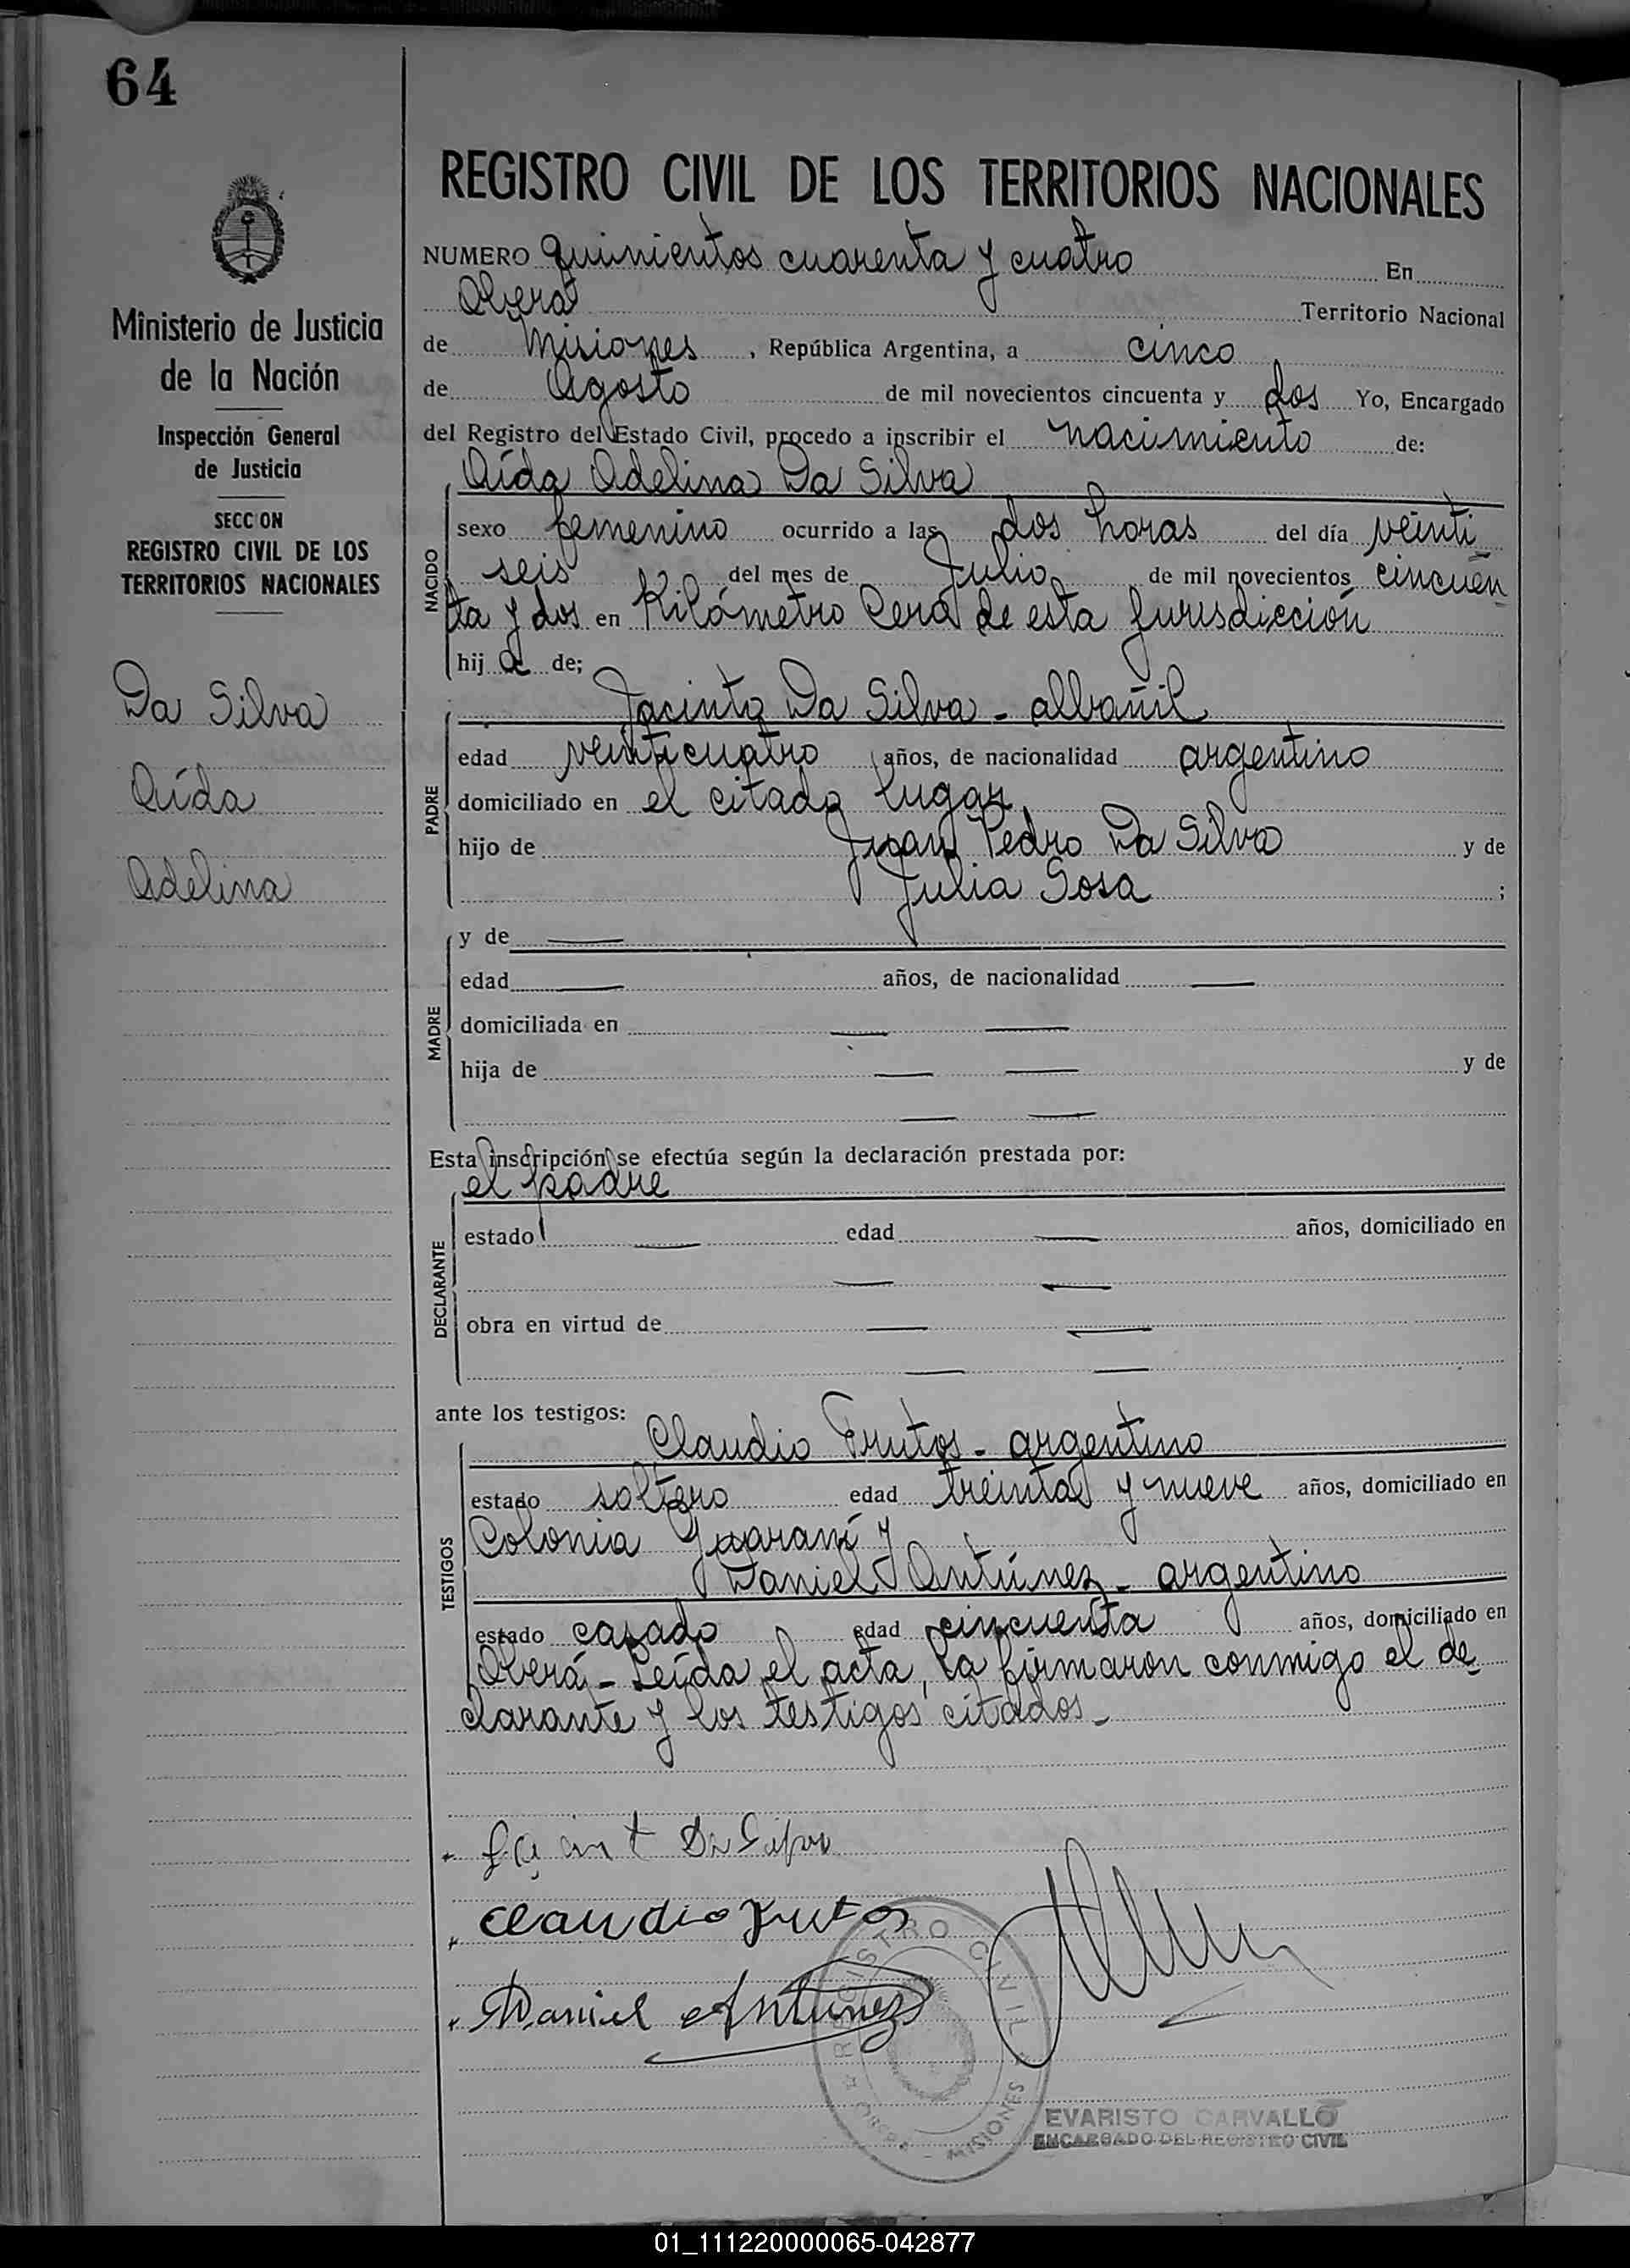 64
REGISTRO CIVIL DE LOS TERRITORIOS NACIONALES
Ministerio de Justicia
de la Nación
Inspección General
de Justicia
SECCION
REGISTRO CIVIL DE LOS
TERRITORIOS NACIONALES
Da Silva
Aída
Adelina
NUMERO quinientos cuarenta y cuatro En
Oberá Territorio Nacional
de Misiones, República Argentina, a cinco
de Agosto de mil novecientos cincuenta y dos Yo, Encargado
del Registro del Estado Civil, procedo a inscribir el nacimiento de:
Aída Adelina Da Silva
NACIDO
sexo femenino ocurrido a las dos horas del día veinti
seis del mes de Julio de mil novecientos cincuen
ta y dos en Kilómetro Cero de esta jurisdicción
hij a de;
Jacinto Da Silva - albañil
PADRE
edad veinticuatro años, de nacionalidad argentino
domiciliado en el citado lugar,
hijo de Juan Pedro Da Silva y de
Julia Sosa ;
MADRE
y de
edad años, de nacionalidad
domiciliada en
hija de y de
Esta inscripción se efectúa según la declaración prestada por:
el padre
DECLARANTE
estado edad años, domiciliado en
obra en virtud de
ante los testigos:
Claudio Frutos - argentino
TESTIGOS
estado soltero edad treinta y nueve años, domiciliado en
Colonia Guaraní y
Daniel Antúnez - argentino
estado casado edad cincuenta años, domiciliado en
Oberá - Leída el acta, la firmaron conmigo el de
clarante y los testigos citados -
Claudio Frutos
Daniel Antunez
REGISTRO CIVIL
OBERA - MISIONES
EVARISTO CARVALLO
ENCARGADO DEL REGISTRO CIVIL
01_111220000065-042877